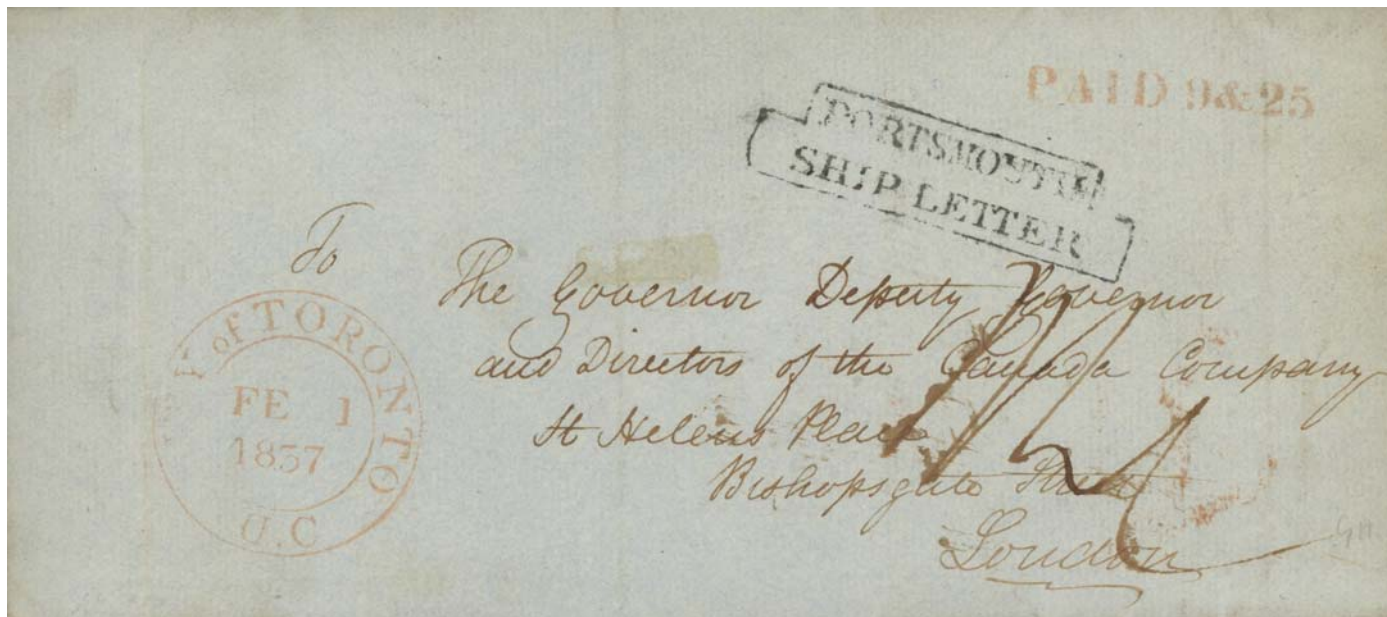 PAID 9&25
PORTSMOUTH
SHIP LETTER
To
The Governor Deputy Governor
and Directors of the Canada Company
St Helens Place
Bishopsgate Street
London
of TORONTO
FE 1
1837
U.C